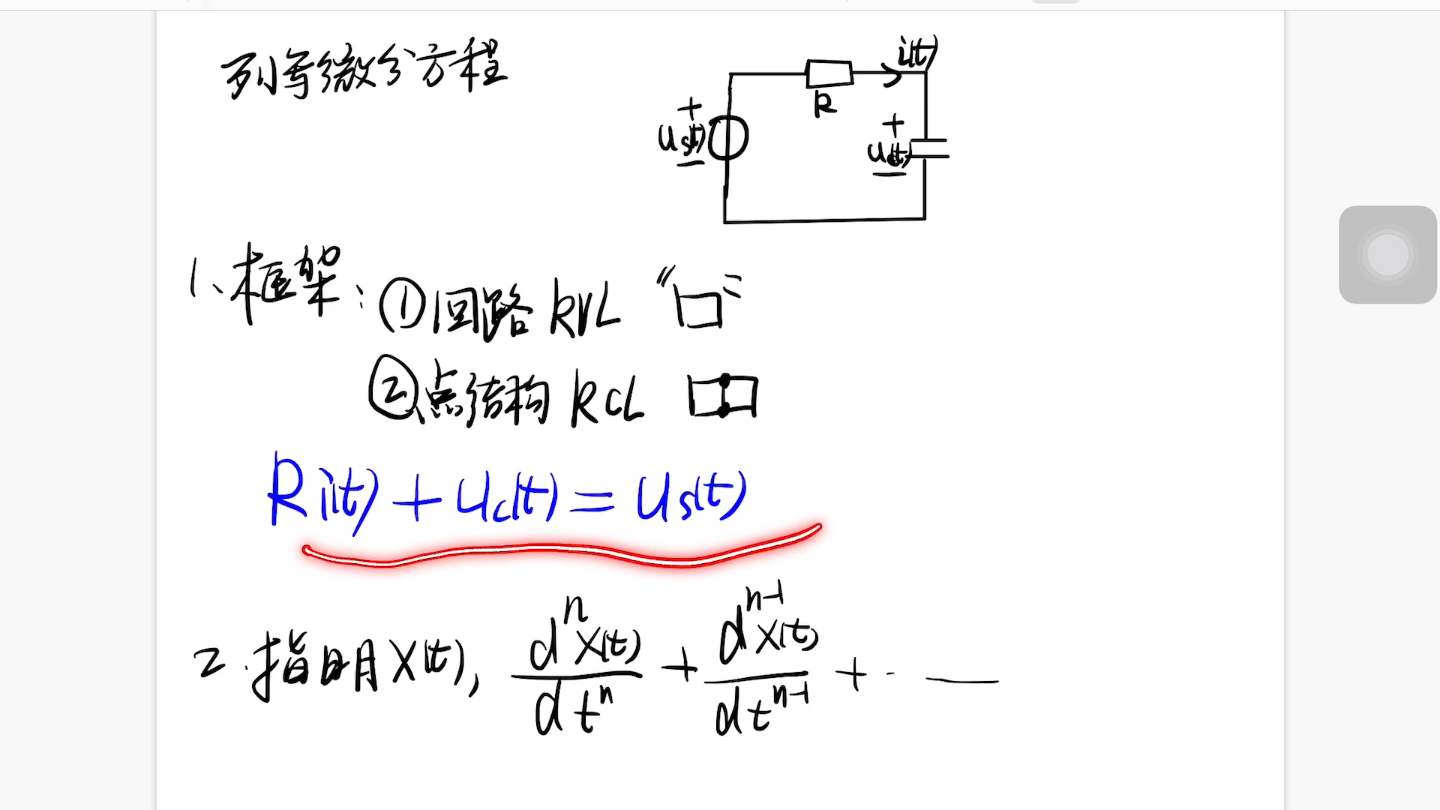 列写微分方程
i(t)
R
+
us(t)
-
+
uc(t)
-
1、框架：①回路 KVL “口”
②点结构 KCL
Ri(t)+uc(t)=us(t)
2.指明X(t), d^n X(t)/dt^n + d^(n-1) X(t)/dt^(n-1) + ··